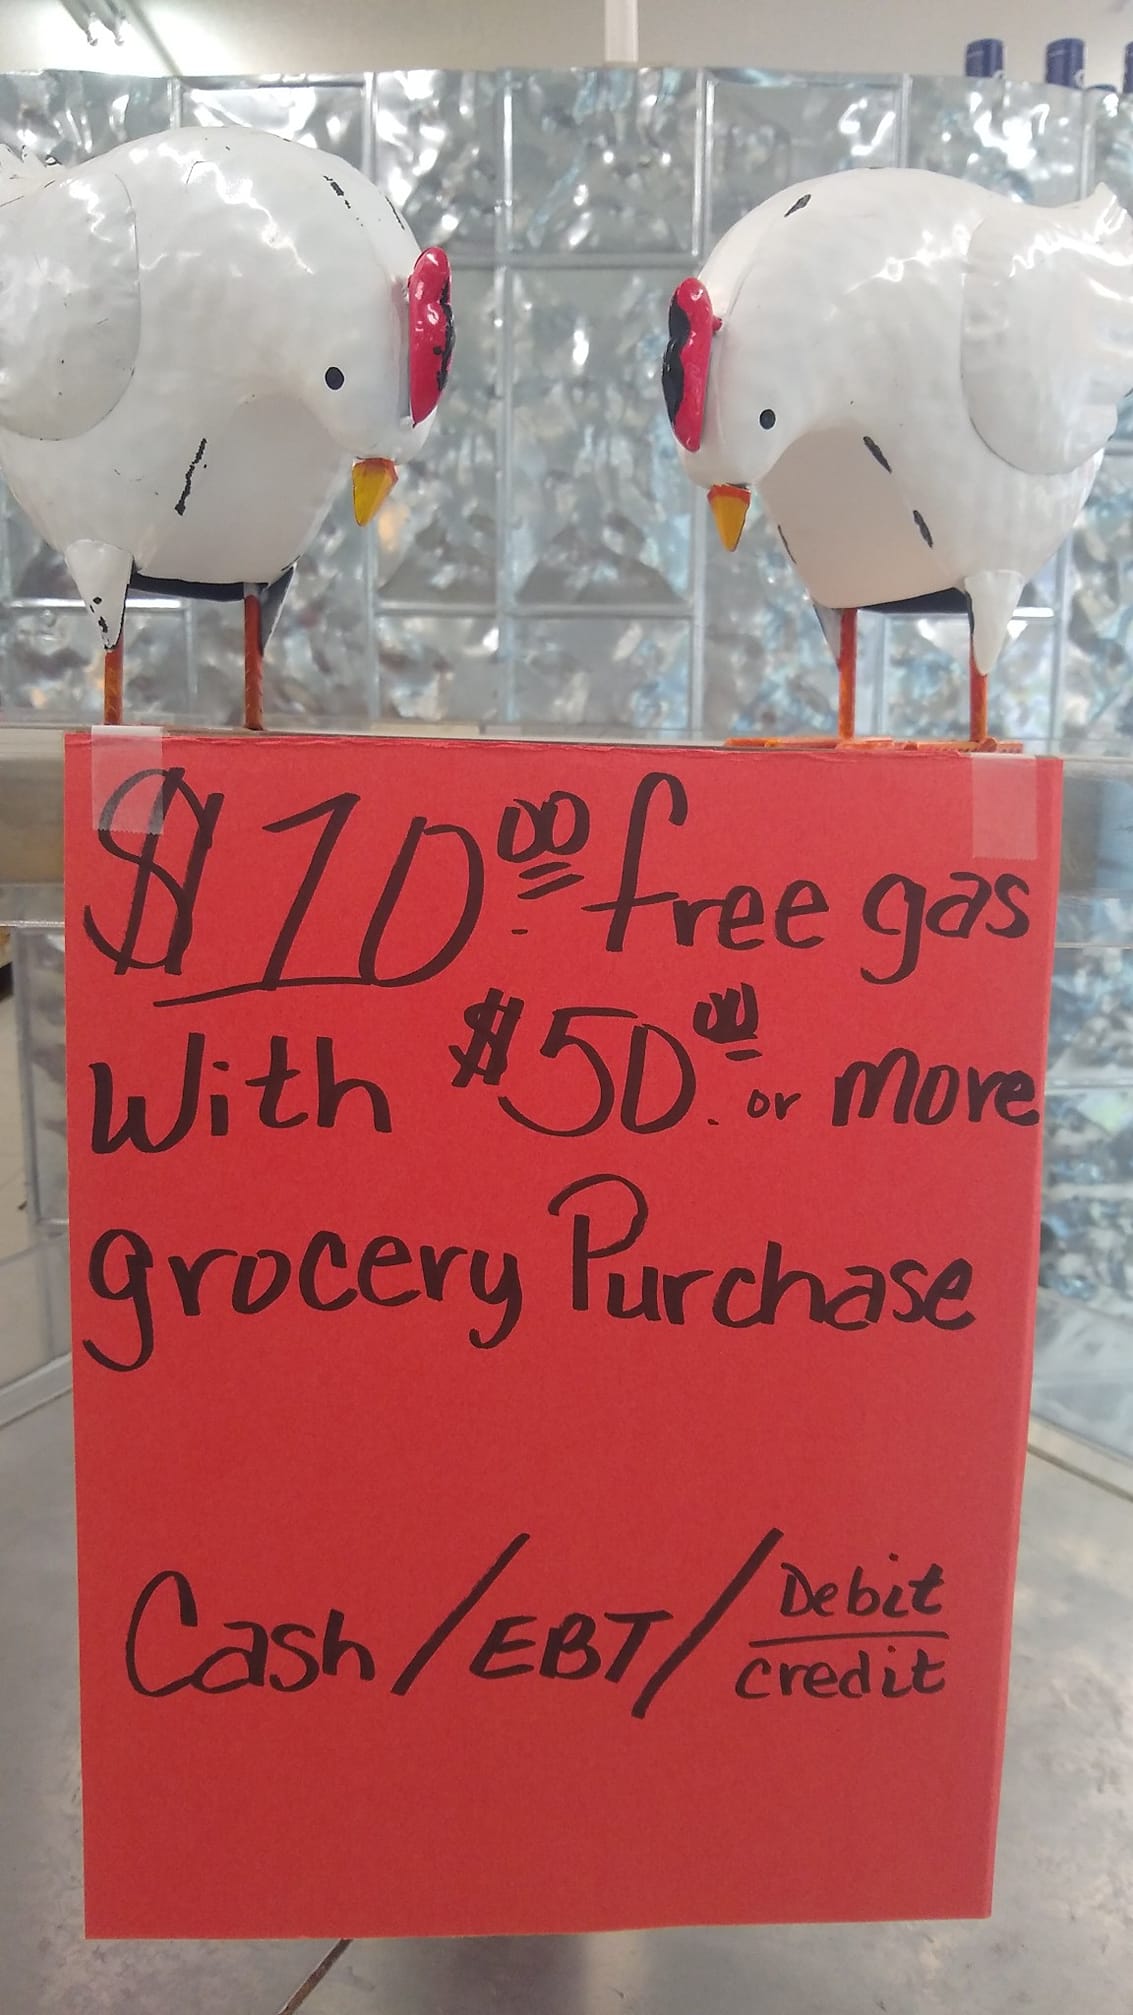 $10.00 free gas
With $50.00 or more
grocery Purchase
Cash/EBT/Debit
credit